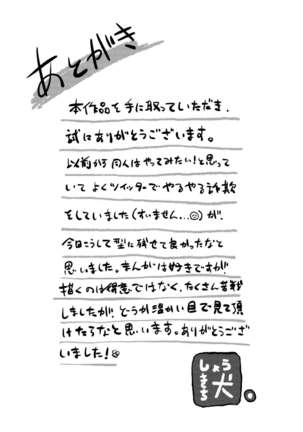 あとがき
本作品を手に取っていただき、
誠にありがとうございます。
以前から同人はやってみたい!と思って
いて よくツイッターでやるやる詐欺
をしていました(すいません...)が、
今日こうして型に残せて良かったなと
思いました。まんがは好きですが
描くのは得意ではなく、たくさん苦戦
しましたが、どうか温かい目で見て頂
けたらなと思います。ありがとうござ
いました!
しょう
きち
犬